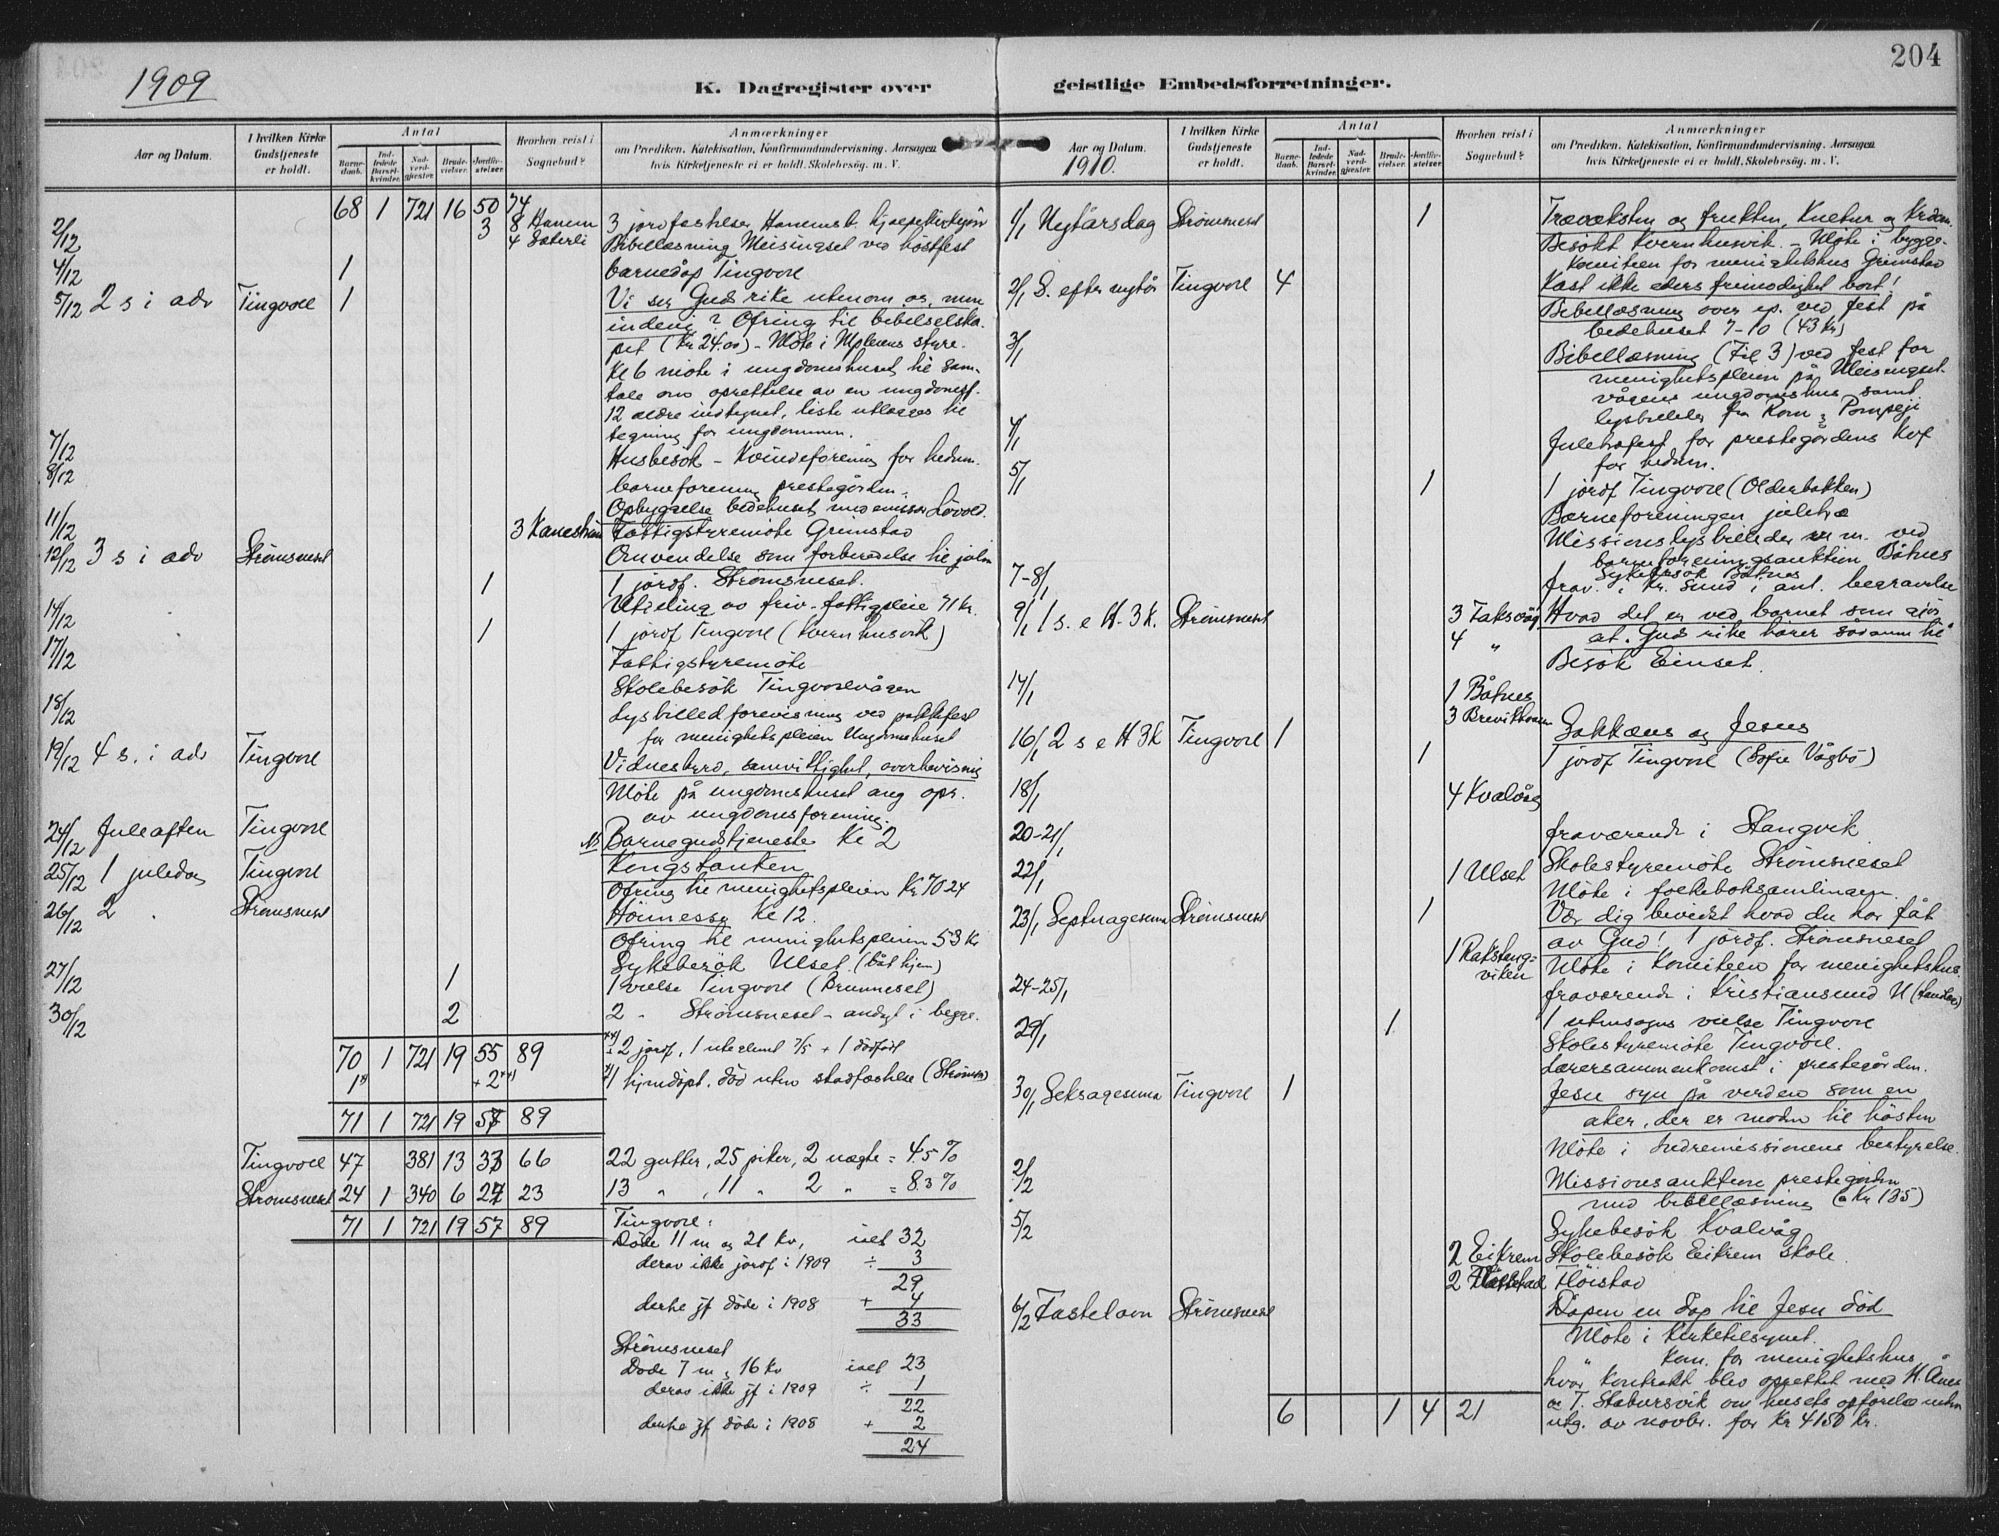 204
1909
K. Dagregister over
geistlige Embedsforretninger.
Aar og Datum.
I hvilken Kirke Gudstjeneste er holdt.
Antal
Barnedaab.
Indledede Barselkvinder.
Nadverdgjæster.
Brudevielser.
Jordfæstelser.
Hvorhen reist i Sognebud?
Anmærkninger
om Prædiken. Katekisation, Konfirmandundervisning. Aarsagen
hvis Kirketjeneste ei er holdt. Skolebesög. m. V.
68 1 721 16 50 74
2/12 3 8 Hanem 3 jordfæstelser Hanemsb.
4 Sæterli Bibellæsning Meisingset ved höstfest
4/12 1 barnedåp Tingvoll
5/12 2 s i adv Tingvoll 1 Vi ser Guds rike utenom os, men
indeni? Ofring til bibelselska-
pet (Kr 24.00) - Möte i Mpleiens styre.
Kl 6 möte i ungdomshuset til sam-
tale om oprettelse av en ungdomsf.
12 ældre indtegnet, liste utlægges til
tegning for ungdommen.
7/12 Husbesök - Kvindeforening for hedn.
8/12 barneforening prestegården.
Opbyggelse bedehuset
11/12 3 Kanestrøm Fattigstyremöte Grimstad
12/12 3 s i adv Strömsneset Omvendelse som forberedelse til julen
1 1 jordf. Strömsneset.
14/12 Utdeling av friv. fattigpleie 71 kr.
1 1 jordf Tingvoll (Kvernhusvik)
17/12 Fattigstyremöte
Skolebesök Tingvollvågen
18/12 Lysbilledforevisning ved pakkfest
for menighetspleien Ungdomshuset
19/12 4 s. i adv Tingvoll Vidnesbyrd, samvittighet, overbevisning
Möte på ungdomshuset ang opr.
av ungdomsforening.
24/12 Juleaften Tingvoll Barnegudstjeneste Kl 2
25/12 1 juledag Tingvoll Kongstanken
Ofring til menighetspleien Kr 70 24
26/12 2 " Strömsneset Höimesse Kl 12.
Ofring til menighetspleien 53 Kr
Sykebesök Ulset. (båt hjem)
27/12 1 1 vielse Tingvoll (Brunneset)
30/12 2 2 - Strömsneset - andagt i begge.
70 1 721 19 55 89 2 jordf, 1 + 1 dödfödt
1 + 2 hjemdöpt, död uten stadfæstelse (Strömsn)
71 1 721 19 57 89
Tingvoll 47 381 13 33 66 22 gutter, 25 piker, 2 uægte = 4.5 %
Strömsneset 24 1 340 6 24 23 13 " , 11 " 2 " = 8.3 %
71 1 721 19 57 89
Tingvoll:
Döde 11 m og 21 kv, ialt 32
derav ikke jordf i 1909 ÷ 3
29
dertil jf döde i 1908 + 4
33
Strömsneset
Döde 7 m, 16 kv ialt 23
derav ikke jf i 1909 ÷ 1
22
dertil jf döde i 1908 + 2
24
Aar og Datum.
1910.
I hvilken Kirke Gudstjeneste er holdt.
Antal
Barnedaab.
Indledede Barselkvinder.
Nadverdgjæster.
Brudevielser.
Jordfæstelser.
Hvorhen reist i Sognebud?
Anmærkninger
om Prædiken. Katekisation, Konfirmandundervisning. Aarsagen
hvis Kirketjeneste ei er holdt. Skolebesög. m. V.
1/1 Nytårsdag Strömsneset 1 Trævæksten og frukten, Kultur og Krdom.
Besökt Kvernhusvik. - Möte i bygge-
komiteen for menighetshus Grimstad
2/1 S. efter nytår Tingvoll 4 Kast ikke eders frimodighet bort!
Bibellæsning over ep. ved fest på
bedehuset 7-10 (43 Kr)
3/1 Bibellæsning (Fil 3) ved fest for
menighetspleien på Meisingset-
vågens ungdomshus samt
lysbilleder fra Rom & Pompeji
4/1 Juletræfest for prestegårdens Kvf
for hedn.
5/1 1 1 jordf Tingvoll (Olderbakken)
Barneforeningen juletræ
Missionslysbilleder m m. ved
barneforeningsauktion Båtnes
7-8/1 Sykebesök Båtnes
frav. i Kr.sund i anl. begravelse
9/1 1 s. e H. 3 K. Strömsneset 3 Taksvåg Hvad det er ved barnet som gjör
4 " at Guds rike hörer sådanne til
Besök Einset.
14/1 1 Båtnes
3 Brevikhaven
16/1 2 s e H 3K Tingvoll 1 Sakkæus og Jesus
1 1 jordf Tingvoll (Sofie Vågbö)
18/1 4 Kvalvåg
20-21/1 fraværende i Stangvik
22/1 1 Ulset Skolestyremöte Strömsneset
Möte i folkeboksamlingen.
23/1 Septuagesima Strömsneset 1 Vær dig bevidst hvad du har fåt
av Gud! 1 jordf. Strömsneset
1 Rakstangviken Möte i Komiteen for menighetshus.
24-25/1 fraværende i Kristiansund N
29/1 1 1 utensogns vielse Tingvoll
Skolestyremöte Tingvoll.
Lærersammenkomst i prestegården.
30/1 Seksagesima Tingvoll 1 Jesu syn på verden som en
aker, der er moden til hösten
Möte i Indremissionens bestyrelse.
2/2 Missionsauktion prestegården
med bibellæsning (Kr 135)
5/2 Sykebesök Kvalvåg
2 Eikrem Skolebesök Eikrem skole.
2 Flöistad Flöistad
6/2 Fastelavn Strömsneset Dåpen en dåp til Jesu död
Möte i Kirketilsynet.
" Kom. for menighetshus
hvor kontrakt blev oprettet med H.
og T. Stabursvik om husets opförelse inden
utg. av novbr. for Kr 4150 Kr.
6 1 4 21